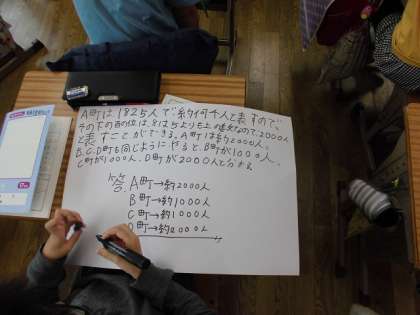 A町は1825人で約何千人と表すので、
その下の百の位は、8は5よりも上の達なので、2000人
と表すことができる。A町は約2000人。
B、C、D町も同じようにやると、B町が1000人、
C町が1000人、D町が2000人と分かる。
答 A町→約2000人
B町→約1000人
C町→約1000人
D町→約2000人